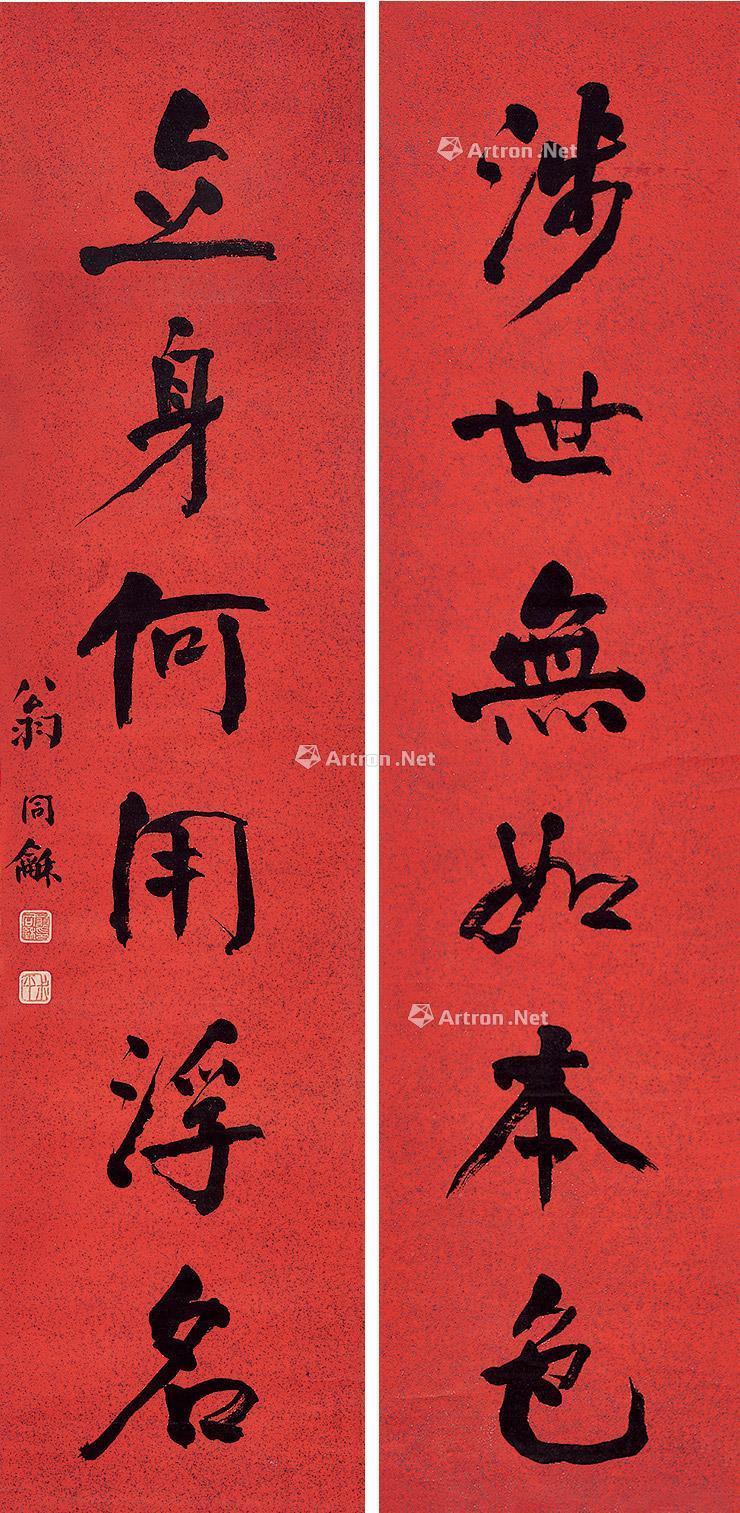 涉世無如本色
立身何用浮名
翁同龢
Artron.Net
Artron.Net
Artron.Net